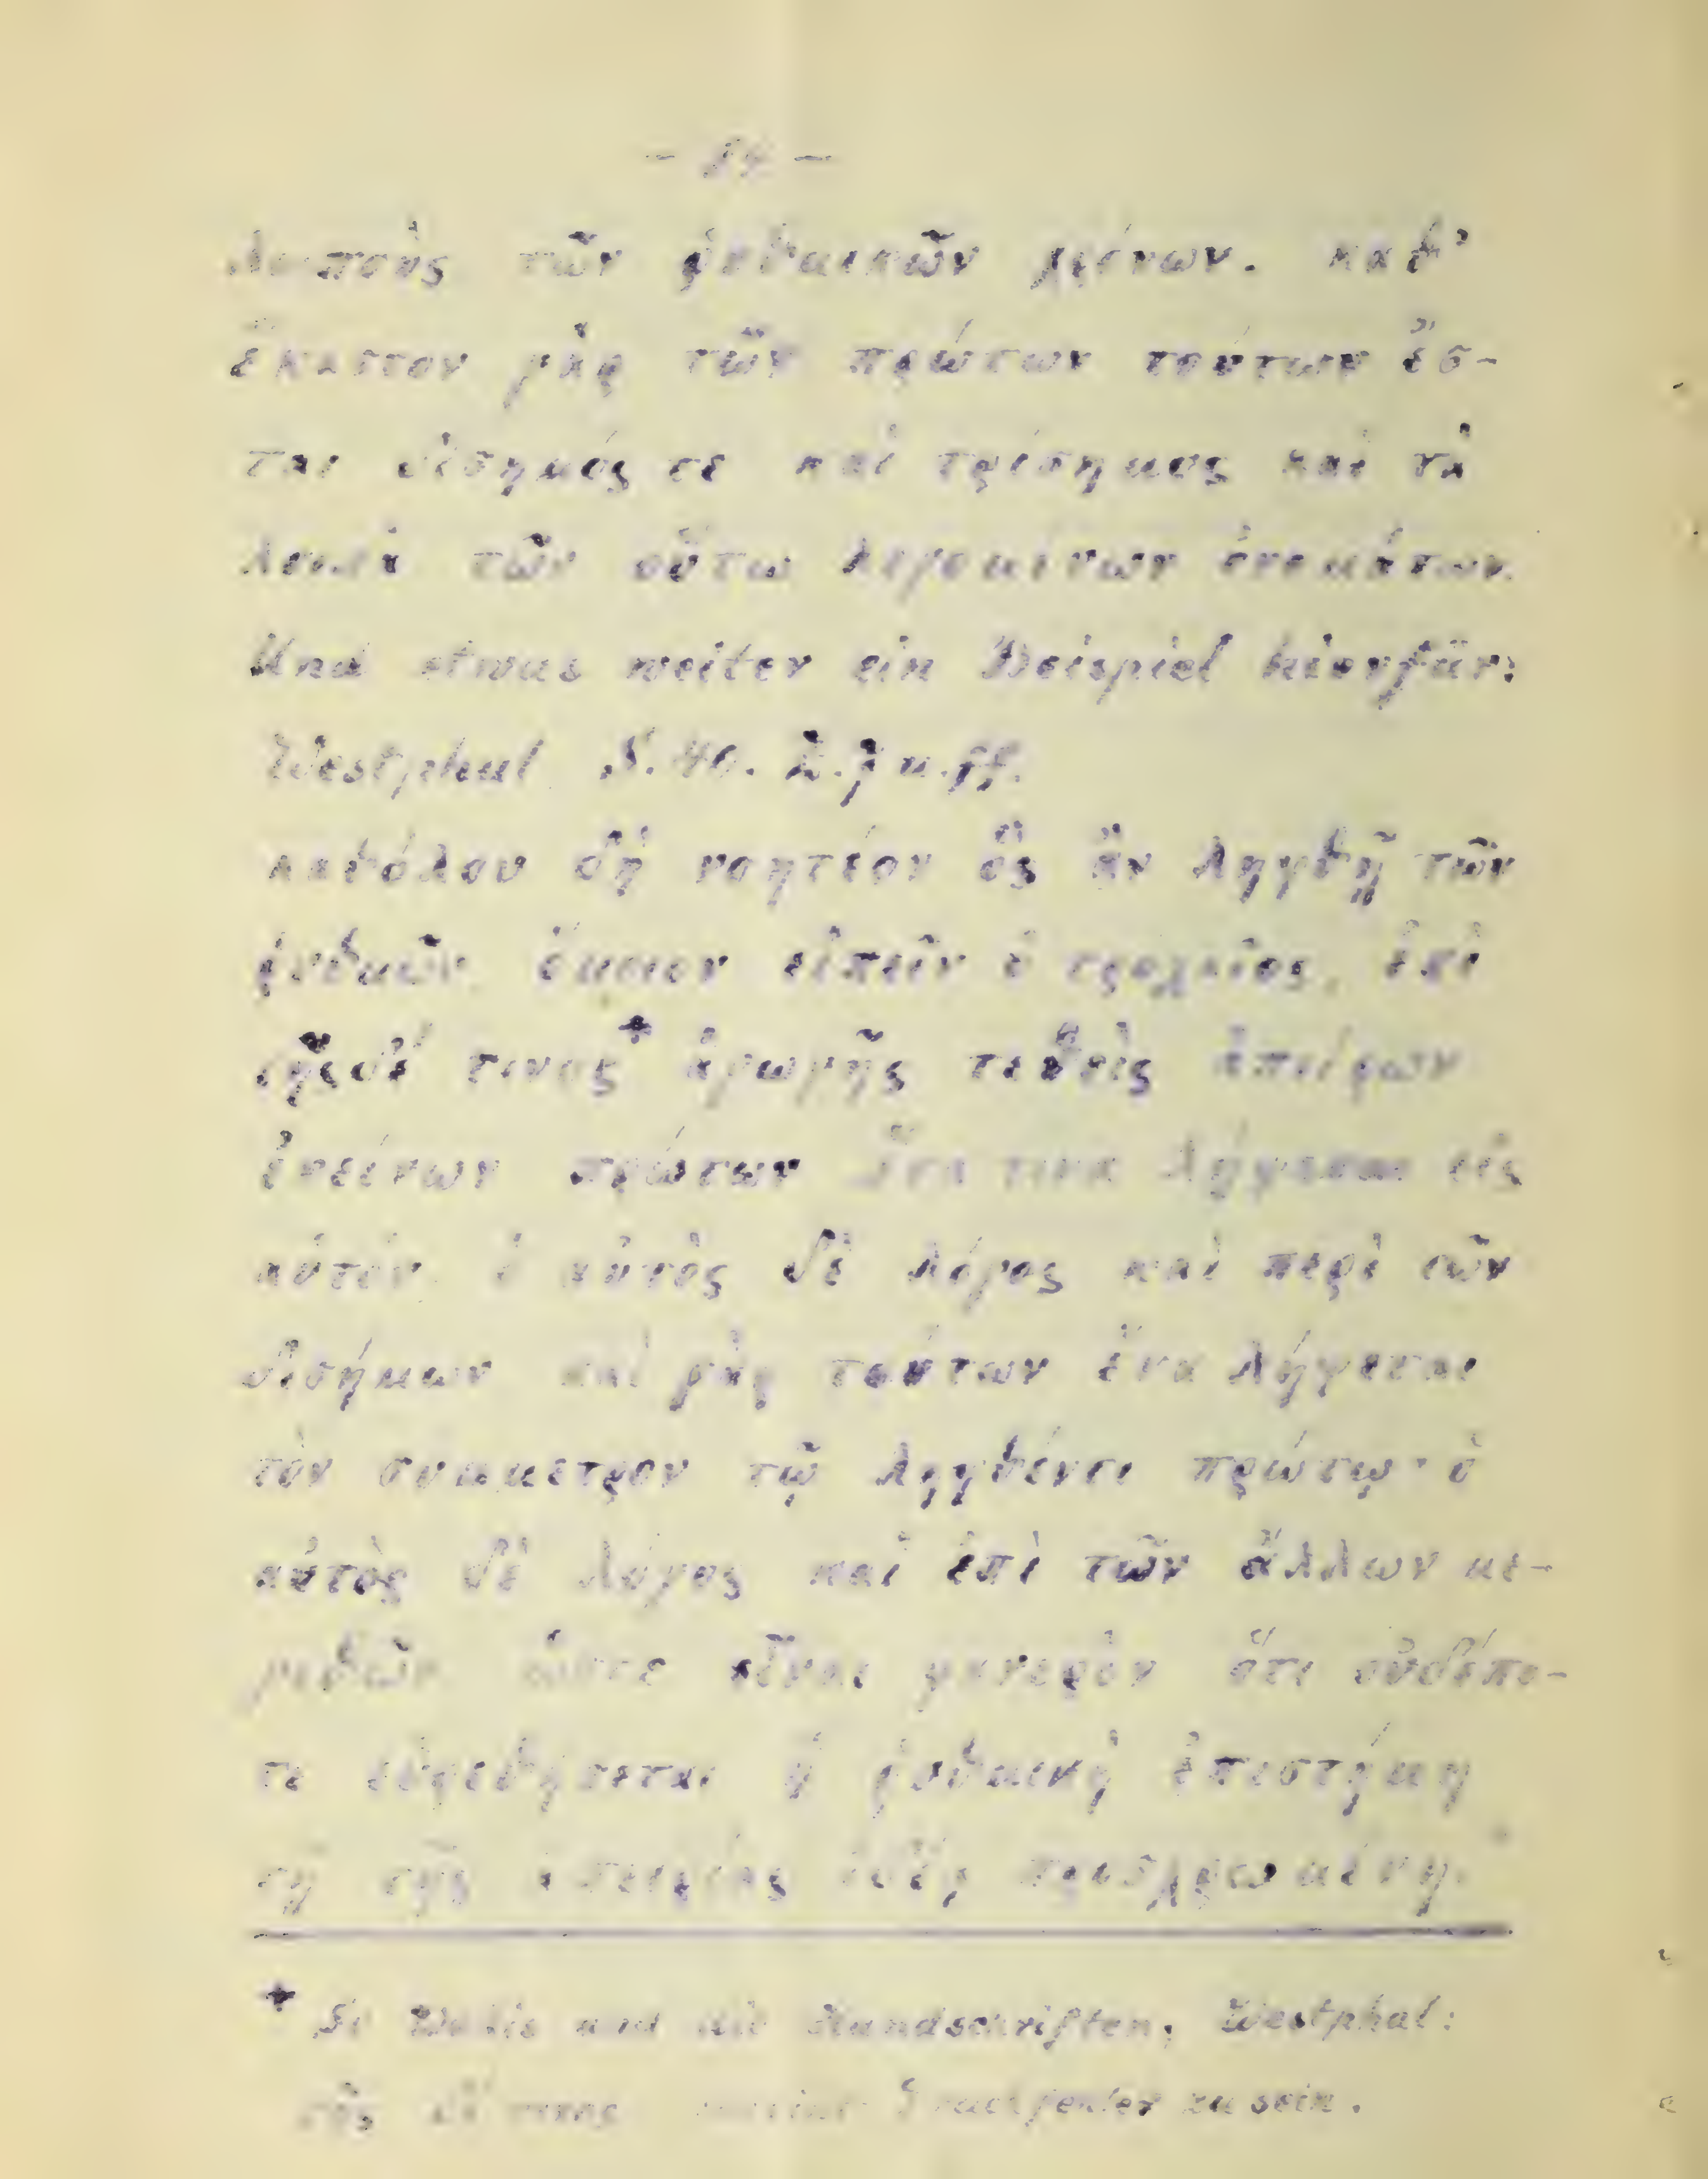 — 34 —
λοιποὺς τῶν ῥυθμικῶν χρόνων. καθ'
ἕκαστον γὰρ τῶν πρώτων τούτων ἔσ-
ται δίσημός τε καὶ τρίσημος καὶ τὰ
λοιπὰ τῶν οὕτω λεγομένων ὀνομάτων.
Und etwas weiter ein Beispiel hierfür:
Westphal S. 40. Z. 7 u. ff.
καθόλου δὴ νοητέον ὃς ἂν ληφθῇ τῶν
ῥυθμῶν, ὅμοιον εἰπεῖν ὁ τροχαῖος, ἐπὶ
τῆσδέ τινος* ἀγωγῆς τεθεὶς ἀπείρων
ἐκείνων πρώτων ἕνα τινα λήψεται εἰς
αὑτόν. ὁ αὐτὸς δὲ λόγος καὶ περὶ τῶν
δισήμων καὶ γὰρ τούτων ἕνα λήψεται
τὸν σύμμετρον τῷ ληφθέντι πρώτῳ· ὁ
αὐτὸς δὲ λόγος καὶ ἐπὶ τῶν ἄλλων με-
γεθῶν. ὥστε εἶναι φανερὸν ὅτι οὐδέπο-
τε εὑρεθήσεται ἡ ῥυθμικὴ ἐπιστήμη
τῇ τῆς ἀπειρίας ἰδέᾳ προσχρωμένη.
* So Wallis und die Handschriften, Westphal:
τῆς δέ τινος scheint Druckfehler zu sein.